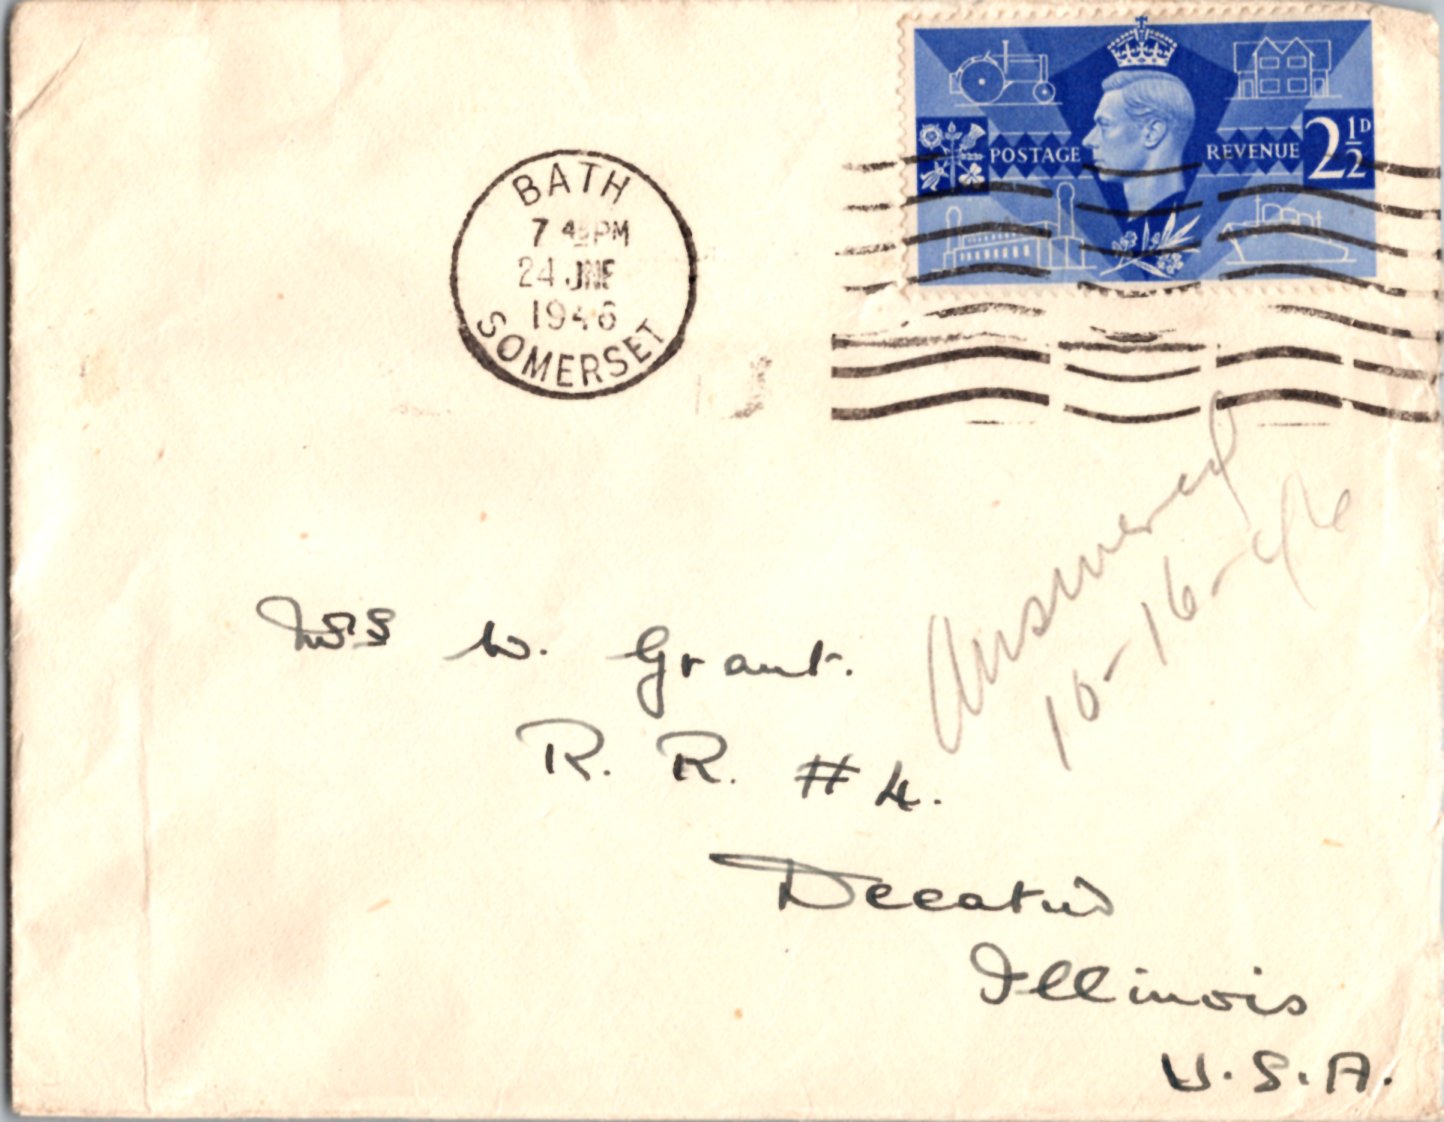 POSTAGE REVENUE 2½D
BATH
7 45 PM
24 JNE
1946
SOMERSET
Answered
10-16-46
Mrs W. Grant.
R. R. #4.
Decatur
Illinois
U.S.A.